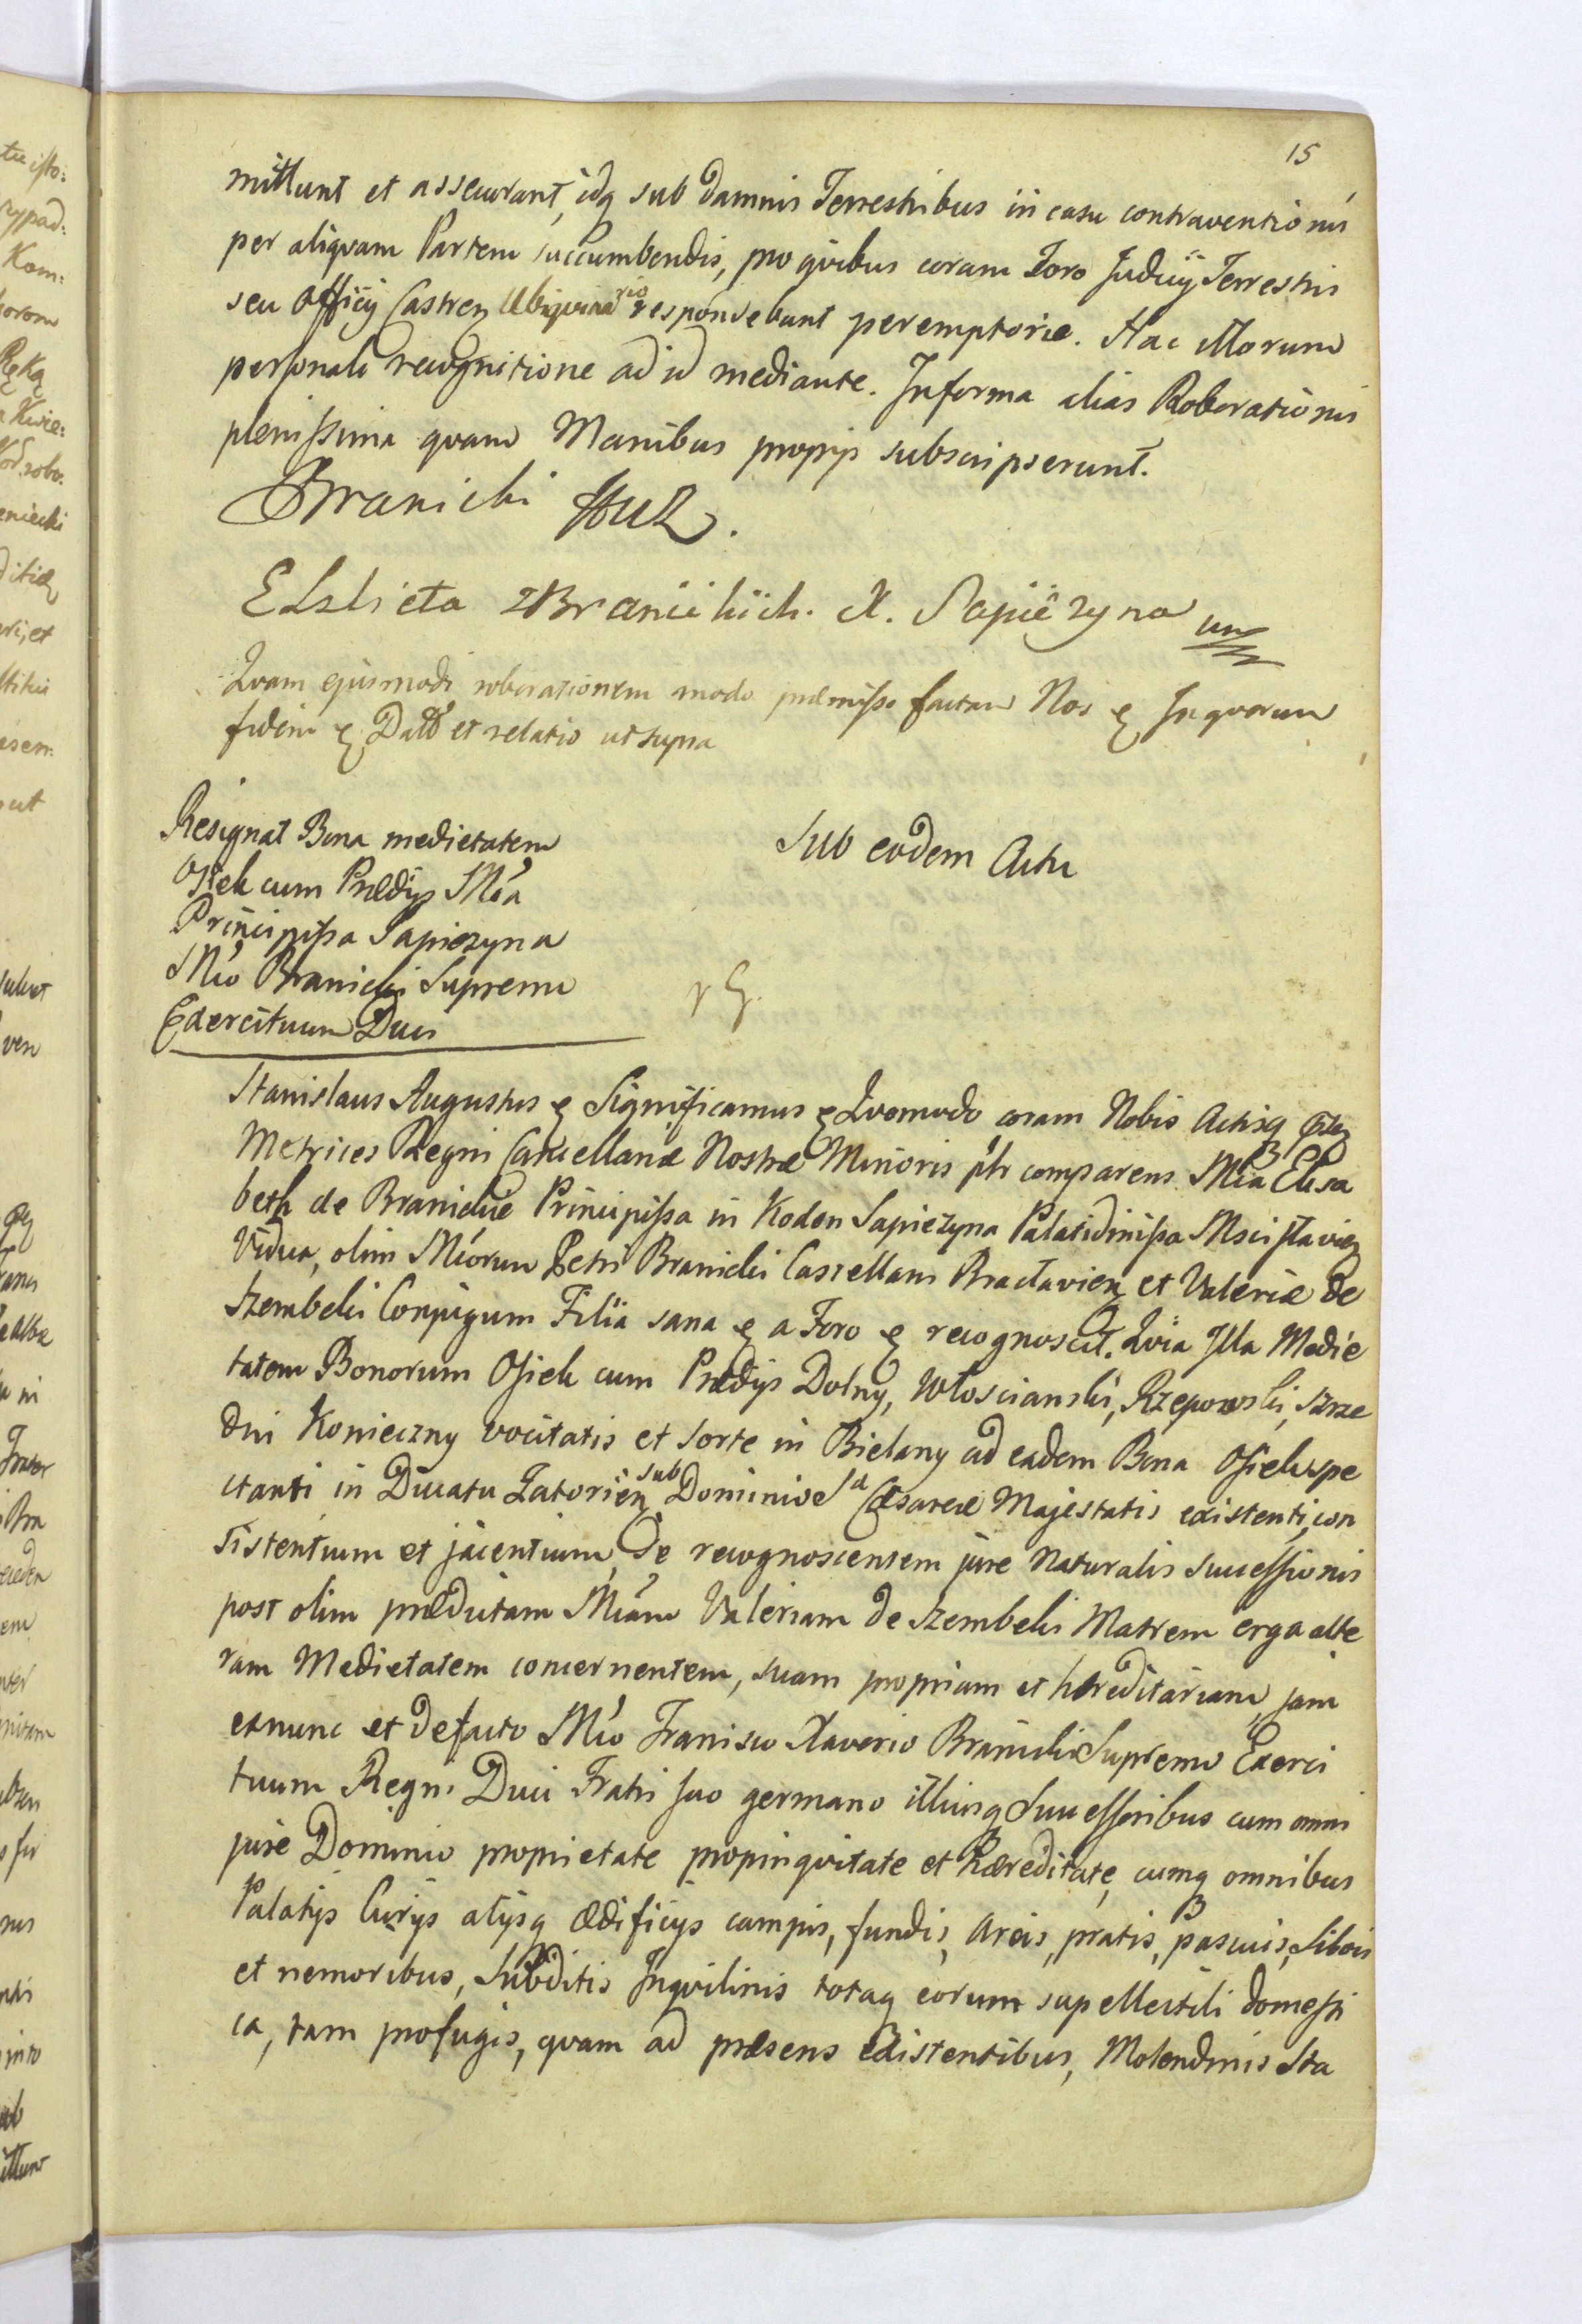 15
mittunt et assecurant, idq sub damnis Terrestribus in casu contraventionis
per aliqvam Partem succumbendis, pro qvibus coram Foro Judicij Terrestris
seu Officij Castren Ubiqvinario respondebunt peremptorie. Hac illorum
personali recognitione ad id mediante. In forma alias Roborationis
plenissima qvam Manibus proprijs subscripserunt.
Branicki HWK.
Elsbieta z Branickich X. Sapiezyna
Qvam ejusmodi roborationem modo præmisso factam Nos & In qvorum
fidem & Datt et relatio ut supra
Resignat Bona medietatem
Osiek cum Prædijs Mca
Principissa Sapiezyna
Mco Branicki Supremo
Exercituum Duci
Sub eodem Actu
Stanislaus Augustus & Significamus & Qvomodo coram Nobis Actisq
Metrices Regni Cancellariæ Nostræ Minoris plr comparens Mca Elisa
beth de Branickie Principissa in Koden Sapiezyna Palatidinissa Mscislavien
Vidua, olim Mcorum Petri Branicki Castellani Braclavien et Valeriæ de
Szembeki Conjugum Filia sana & a Foro & recognoscit. Qvia Illa Medie
tatem Bonorum Osiek cum Prædijs Dolny, Włoscianski, Rzepowski, Szrze
dni Konieczny vocitatis et sorte in Bielany ad eadem Bona Osiek spe
ctanti in Ducatu Zatorien sub Dominio Sa Cæsareæ Majestatis existenti, con
sistentium et jacentium, Se recognoscentem jure Naturalis Successionis
post olim prædictam Mcam Valeriam de Szembeki Matrem erga alte
ram Medietatem concernentem, suam propriam et hæreditariam, jam
exnunc et defacto Mco Francisco Xaverio Branicki Supremo Exerci
tuum Regni Duci Fratri suo germano illiusq Successoribus cum omni
jure Dominio proprietate propinqvitate et hæreditate, cumq omnibus
Palatijs Curijs alijsq ædificijs campis, fundis, areis, pratis, pascuis, Silvis
et nemoribus, Subditis Inqvilinis totaq eorum supellectili domesti
ca, tam profugis, qvam ad præsens existentibus, Molendinis Sta